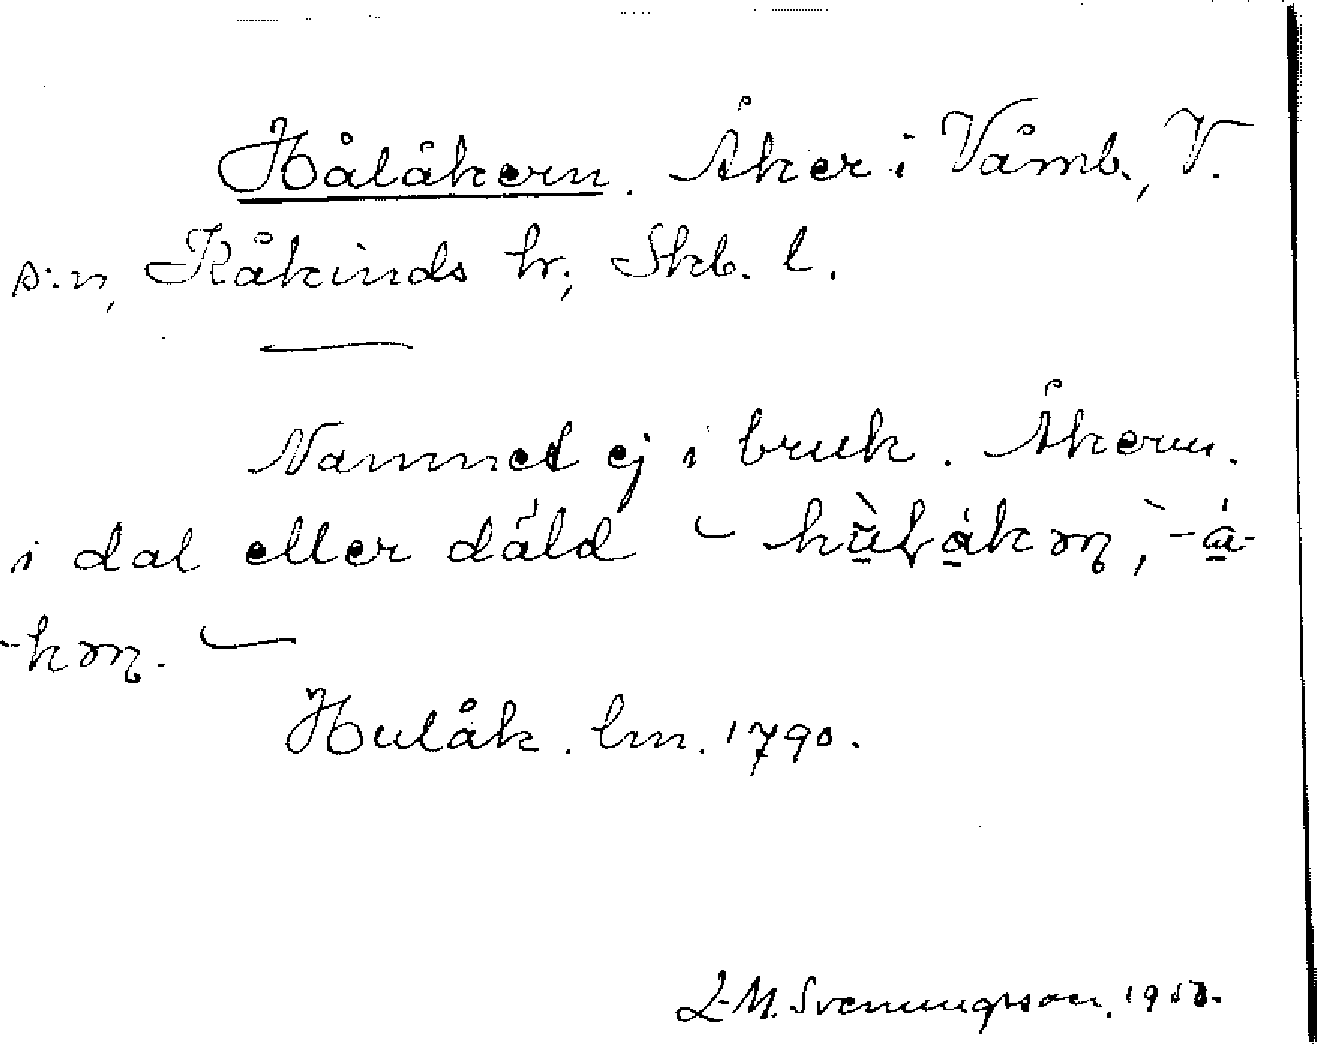 Hålåkern. Åker i Våmb, V.
s:n, Kåkinds hr; Skb. l.
Namnet ej i bruk. Åkern.
i dal eller däld –
-km. –
Hulåk. lm. 1790.
L-M. Svenungsson, 1950.